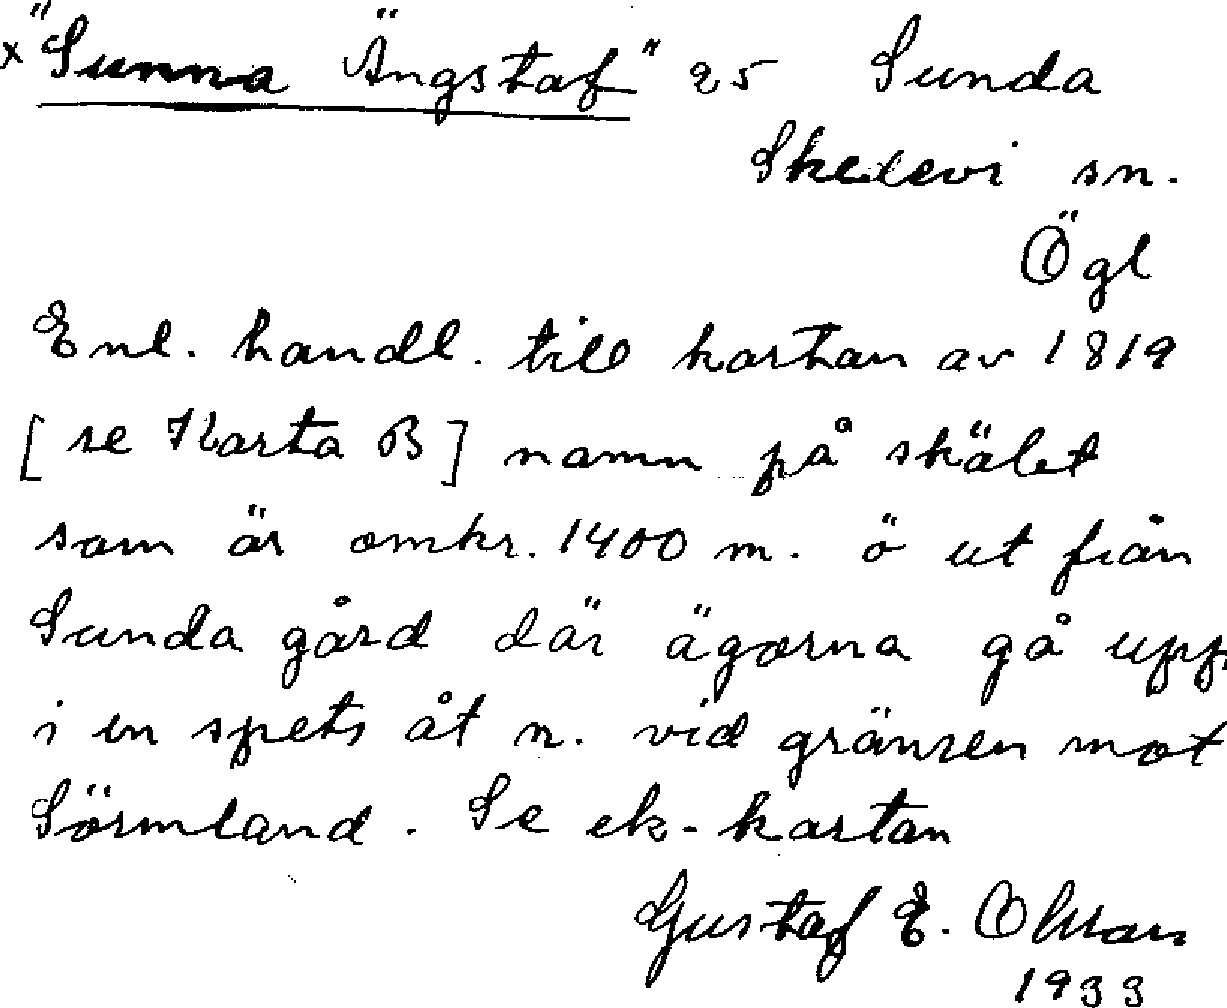 x "Sunna Ängstaf" 25 Sunda
Skedevi sn.
Ögl
Enl. handl. till kartan av 1819
[se Karta B] namn på skälet
som är omkr. 1400 m. ö ut från
Sunda gård där ägorna gå upp
i en spets åt n. vid gränsen mot
Sörmland. Se ek-kartan
Gustaf E. Olsson
1933